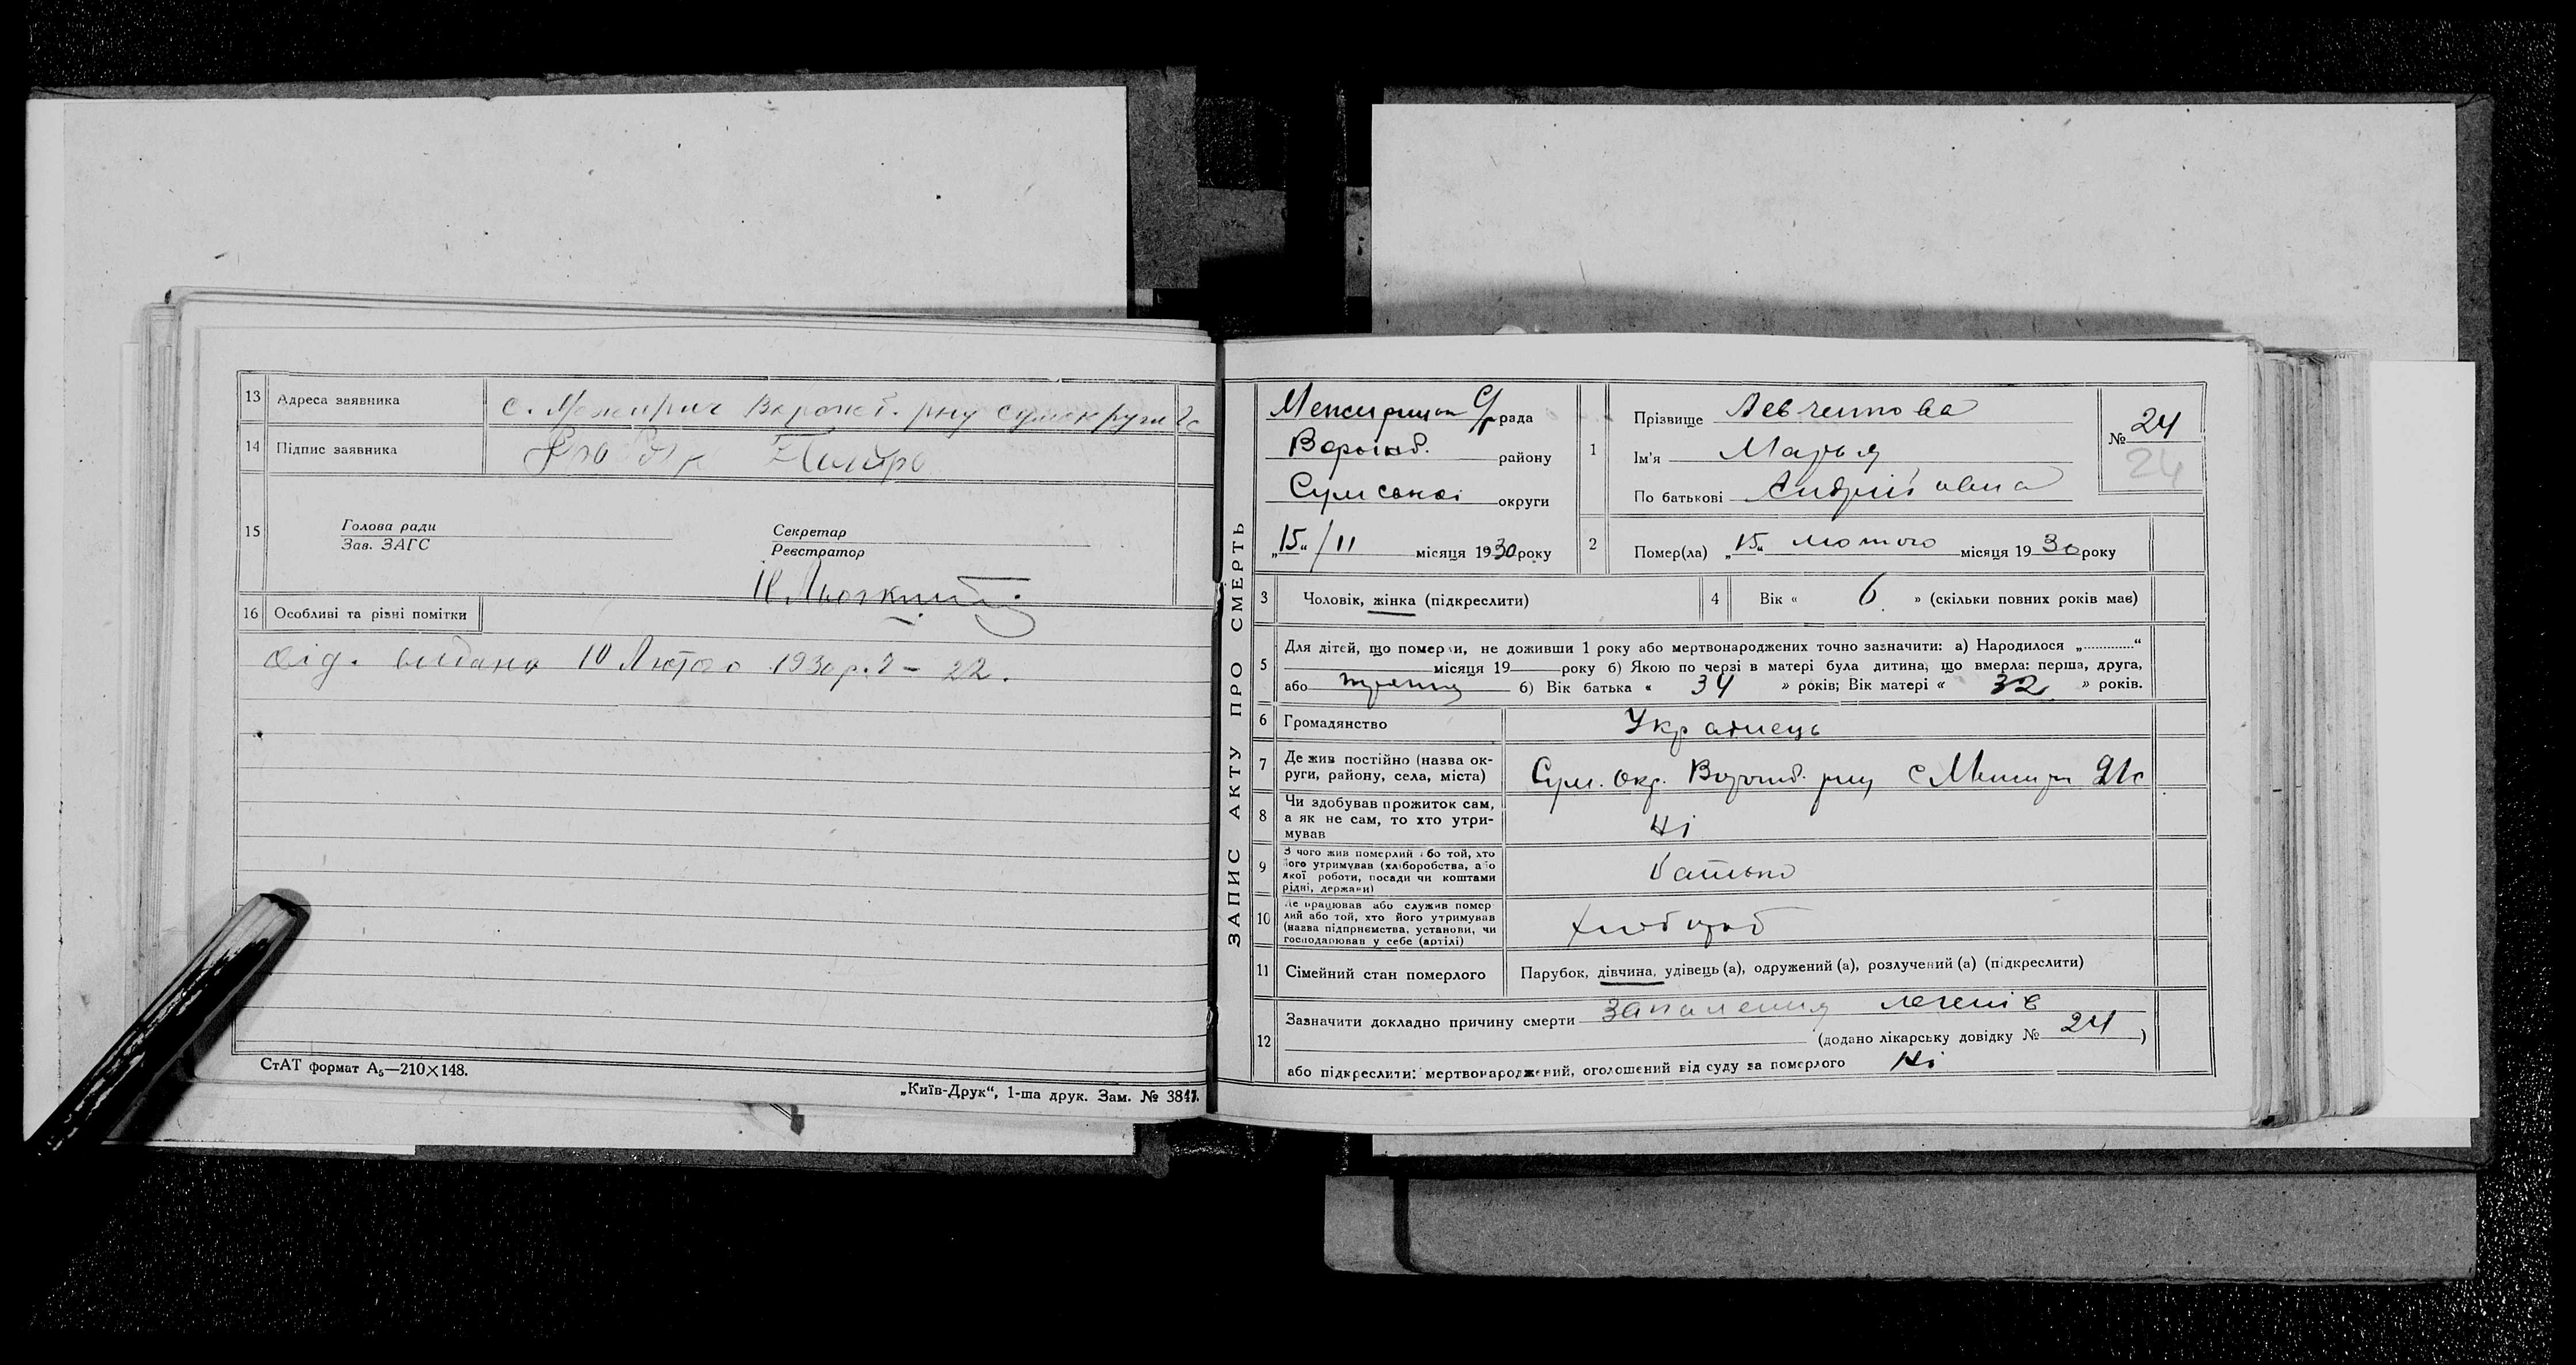 13 Адреса заявника с. Межирич Ворожб. р-ну Сумокруги
14 Підпис заявника Петро
15 Голова ради
Зав. ЗАГС
Секретар
Реєстратор
16 Особливі та різні помітки
видано 10 Лютого 1930 р. 22.
СтАТ формат А₅—210×148.
„Київ-Друк“, 1-ша друк. Зам. № 3847.
ЗАПИС АКТУ ПРО СМЕРТЬ
С/рада
Ворожб. району
Сумської округи
„15“/II місяця 1930 року
1 Прізвище Левченкова
Ім'я Марья
По батькові Андріївна
№ 24
24
2 Помер(ла) „15“ лютого місяця 1930 року
3 Чоловік, жінка (підкреслити)
4 Вік « 6 » (скільки повних років має)
5 Для дітей, що померли, не доживши 1 року або мертвонароджених точно зазначити: а) Народилося „............“
місяця 19 року б) Якою по черзі в матері була дитина, що вмерла: перша, друга,
або 6) Вік батька « 34 » років; Вік матері « 32 » років.
6 Громадянство Українець
7 Де жив постійно (назва округи, району, села, міста) Сум. Окр. Ворожб. р-ну с
8 Чи здобував прожиток сам,
а як не сам, то хто утри-
мував Ні
9 З чого жив померлий або той, хто
його утримував (хліборобства, або
якої роботи, посади чи коштами
рідні, держави) батько
10 Де працював або служив помер
лий або той, хто його утримував
(назва підприємства, установи, чи
господарював у себе (артілі) хлібороб
11 Сімейний стан померлого Парубок, дівчина, удівець (а), одружений (а), розлучений (а) (підкреслити)
12 Зазначити докладно причину смерти Запалення легенів
(додано лікарську довідку № 24)
або підкреслити: мертвонароджений, оголошений від суду за померлого Ні